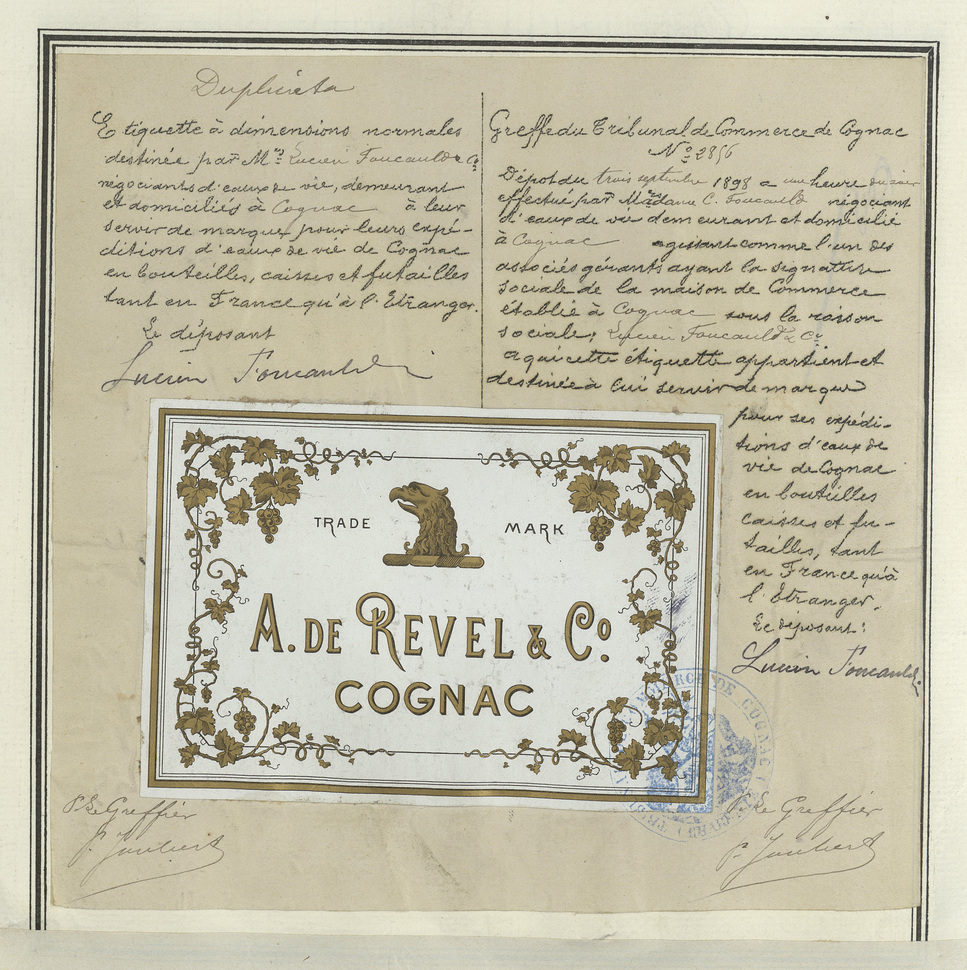 Duplicata
Etiquette à dimensions normales
destinée par Mrs Lucien Foucauld & Cie
négociants d'eaux de vie, demeurant
et domiciliés à Cognac à leur
servir de marque pour leurs expé-
ditions d'eaux de vie de Cognac
en bouteilles, caisses et futailles
tant en France qu'à l'Etranger.
Le déposant
Lucien Foucauld
Greffe du Tribunal de Commerce de Cognac
No 2856
Dépôt du trois septembre 1898 a une heure du soir
effectué par Madame C. Foucauld négociant
d'eaux de vie demeurant et domicilié
à Cognac agissant comme l'un des
associés gérants ayant la signature
sociale de la maison de Commerce
établie à Cognac sous la raison
sociale; Lucien Foucauld & Cie
a qui cette étiquette appartient et
destinée à lui servir de marque
pour ses expédi-
tions d'eaux de
vie de Cognac
en bouteilles
caisses et fu-
tailles, tant
en France qu'à
l'Etranger.
Le déposant:
Lucien Foucauld
TRADE MARK
A. DE REVEL & Co.
COGNAC
DE COGNAC
P. Le Greffier
P. Joubert
P. Le Greffier
P. Joubert